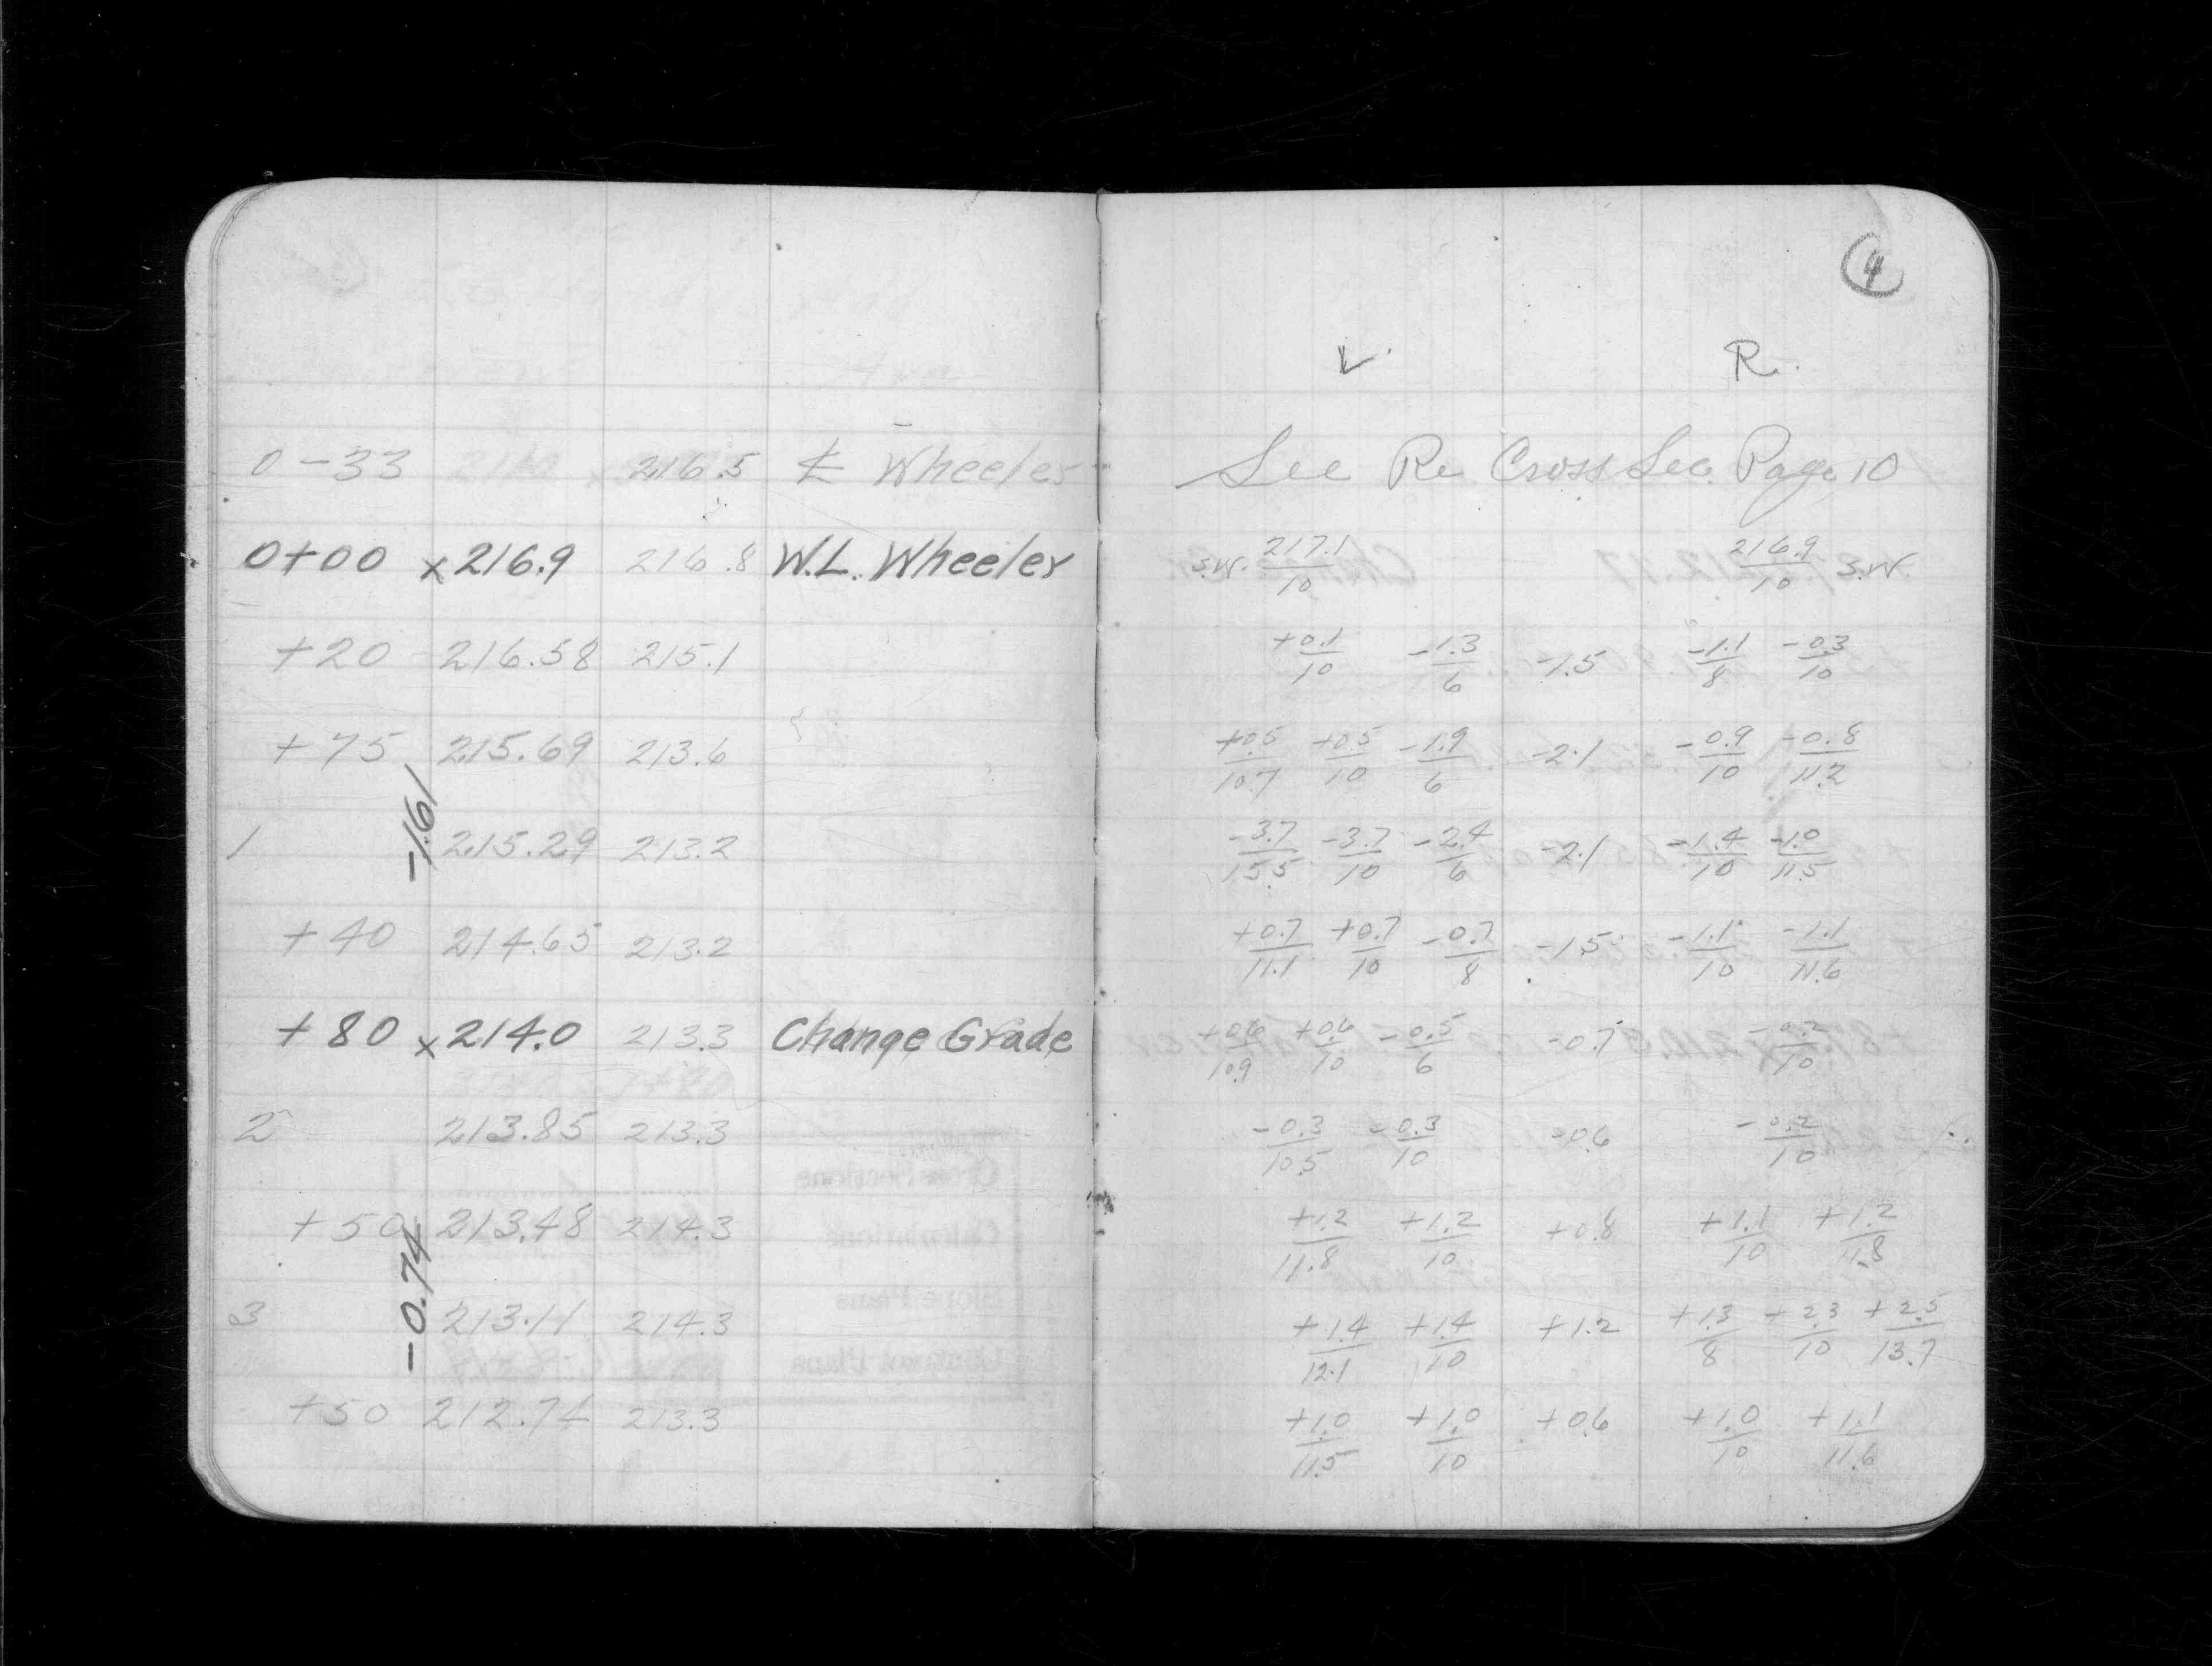 4
L. R.
0 - 33 216.5 ℄ Wheeler See Re Cross Sec. Page 10
0+00 x 216.9 216.8 W.L. Wheeler S.W. 217.1/10 216.9/10 S.W.
+20 216.58 215.1 +0.1/10 -1.3/6 -1.5 -1.1/8 -0.3/10
+75 215.69 213.6 +0.5/10.7 +0.5/10 -1.9/6 -2.1 -0.9/10 -0.8/11.2
-1.61
1 215.29 213.2 -3.7/15.5 -3.7/10 -2.4/6 -2.1 -1.4/10 -1.0/11.5
+40 214.65 213.2 +0.7/11.1 +0.7/10 -0.7/8 -1.5 -1.1/10 -1.1/11.6
+80 x 214.0 213.3 Change Grade +0.6/10.9 +0.6/10 -0.5/6 -0.7 -0.2/10
2 213.85 213.3 -0.3/10.5 -0.3/10 -0.6 -0.2/10
+50 213.48 214.3 +1.2/11.8 +1.2/10 +0.8 +1.1/10 +1.2/11.8
-0.74
3 213.11 214.3 +1.4/12.1 +1.4/10 +1.2 +1.3/8 +2.3/10 +2.5/13.7
+50 212.74 213.3 +1.0/11.5 +1.0/10 +0.6 +1.0/10 +1.1/11.6